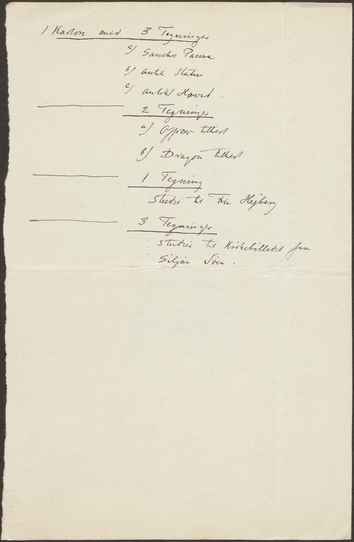 1 Karton med 3 Tegninger
a) Sancho Panza
b) antik Statue
c) antikt Hoved.
2 Tegninger
a)
b) Dragon
1 Tegning
Studie til Fru Hegberg
3 Tegninger
Studier til Kirkebilledet fra
Siljan Söen.